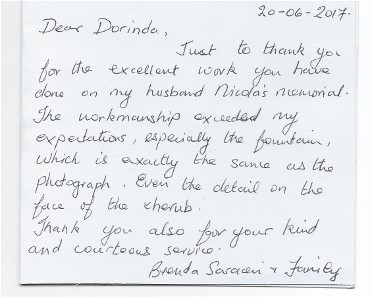 20-06-2017.
Dear Dorinda,
Just to thank you
for the excellent work you have
done on my husband Nicola's memorial.
The workmanship exceeded my
expectations, especially the fountain,
which is exactly the same as the
photograph. Even the detail on the
face of the cherub.
Thank you also for your kind
and courteous service.
Brenda Saraceni & Family